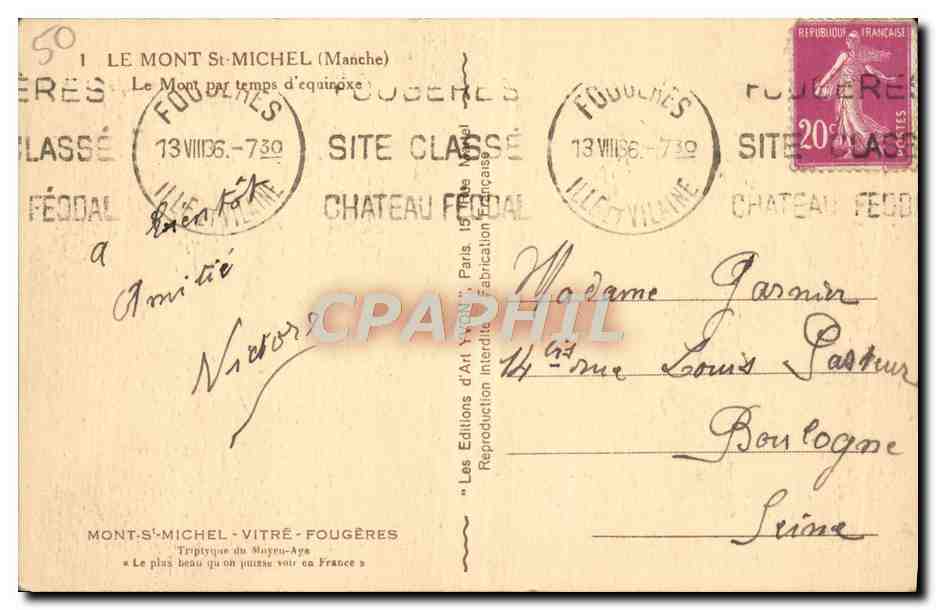 50
1 LE MONT St-MICHEL (Manche)
Le Mont par temps d'equinoxe
ÈRES
CLASSÉ
FÉODAL
FOUGÈRES
13 VIII 36.-7 30
ILLE ET VILAINE
FOUGÈRES
SITE CLASSÉ
CHATEAU FÉODAL
FOUGÈRES
13 VIII 36.-7 30
ILLE ET VILAINE
FOUGÈRES
SITE CLASSÉ
CHATEAU FÉODAL
REPUBLIQUE FRANÇAISE
20c
POSTES
a bientôt
Amitié
Victors
CPAPHIL
"Les Editions d'Art YVON", Paris. 15
Reproduction Interdite. Fabrication Française
Madame Garnier
14 bis rue Louis Pasteur
Boulogne
Seine
MONT-St-MICHEL - VITRÉ - FOUGÈRES
Triptyque du Moyen-Age
« Le plus beau qu'on puisse voir en France »